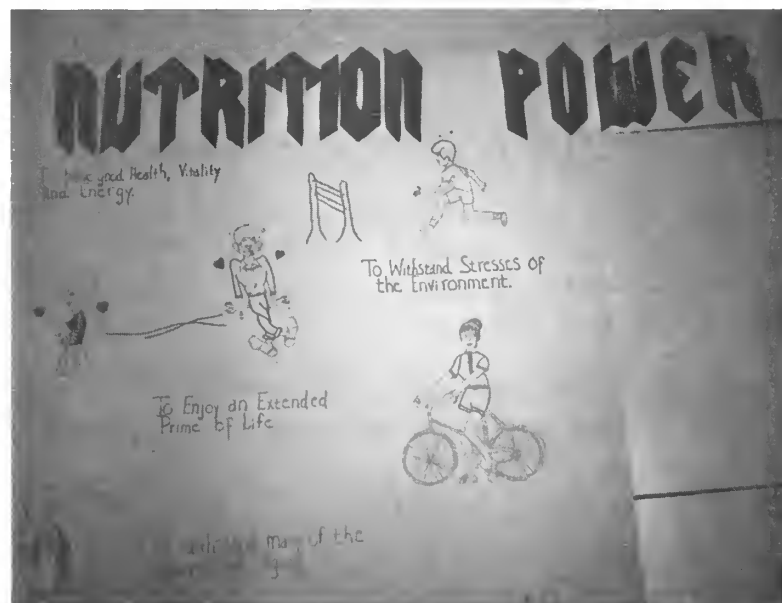 NUTRITION POWER
good Health, Vitality
And Energy.
To Withstand Stresses of
the Environment.
To Enjoy an Extended
Prime of Life
of the